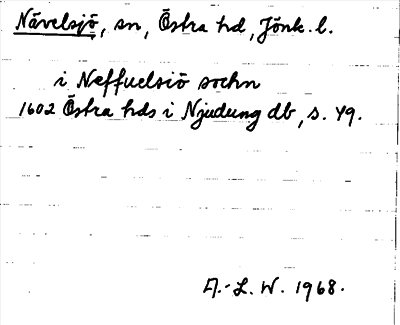 Nävelsjö, sn, Östra hd, Jönk. l.
i Neffuelsiö sochn
1602 Östra hds i Njudung db, s. 49.
A.-L. W. 1968.